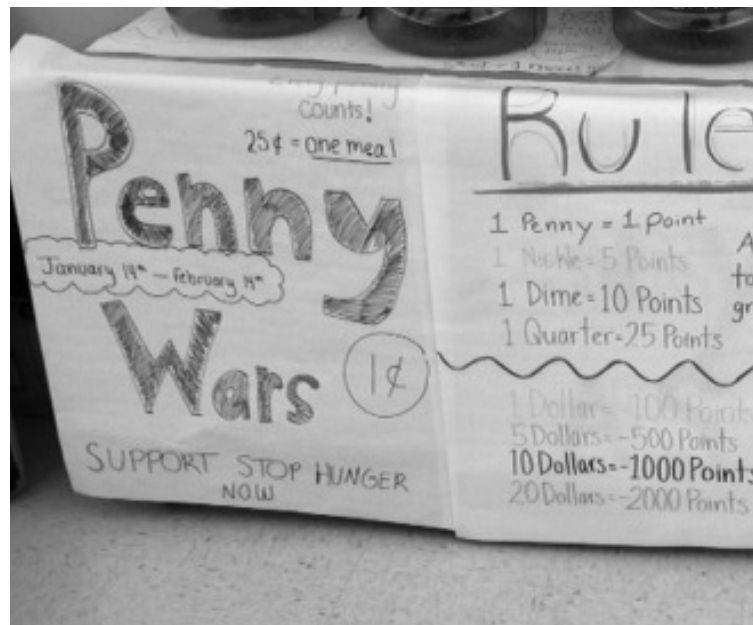 every penny
counts!
25¢ = one meal
Penny
January 14th – February 14th
Wars
1¢
SUPPORT STOP HUNGER
NOW
Rule
1 Penny = 1 point
1 Nickle = 5 Points
1 Dime = 10 Points
1 Quarter = 25 Points
A
to
gr
1 Dollar = -100 Points
5 Dollars = -500 Points
10 Dollars = -1000 Points
20 Dollars = -2000 Points